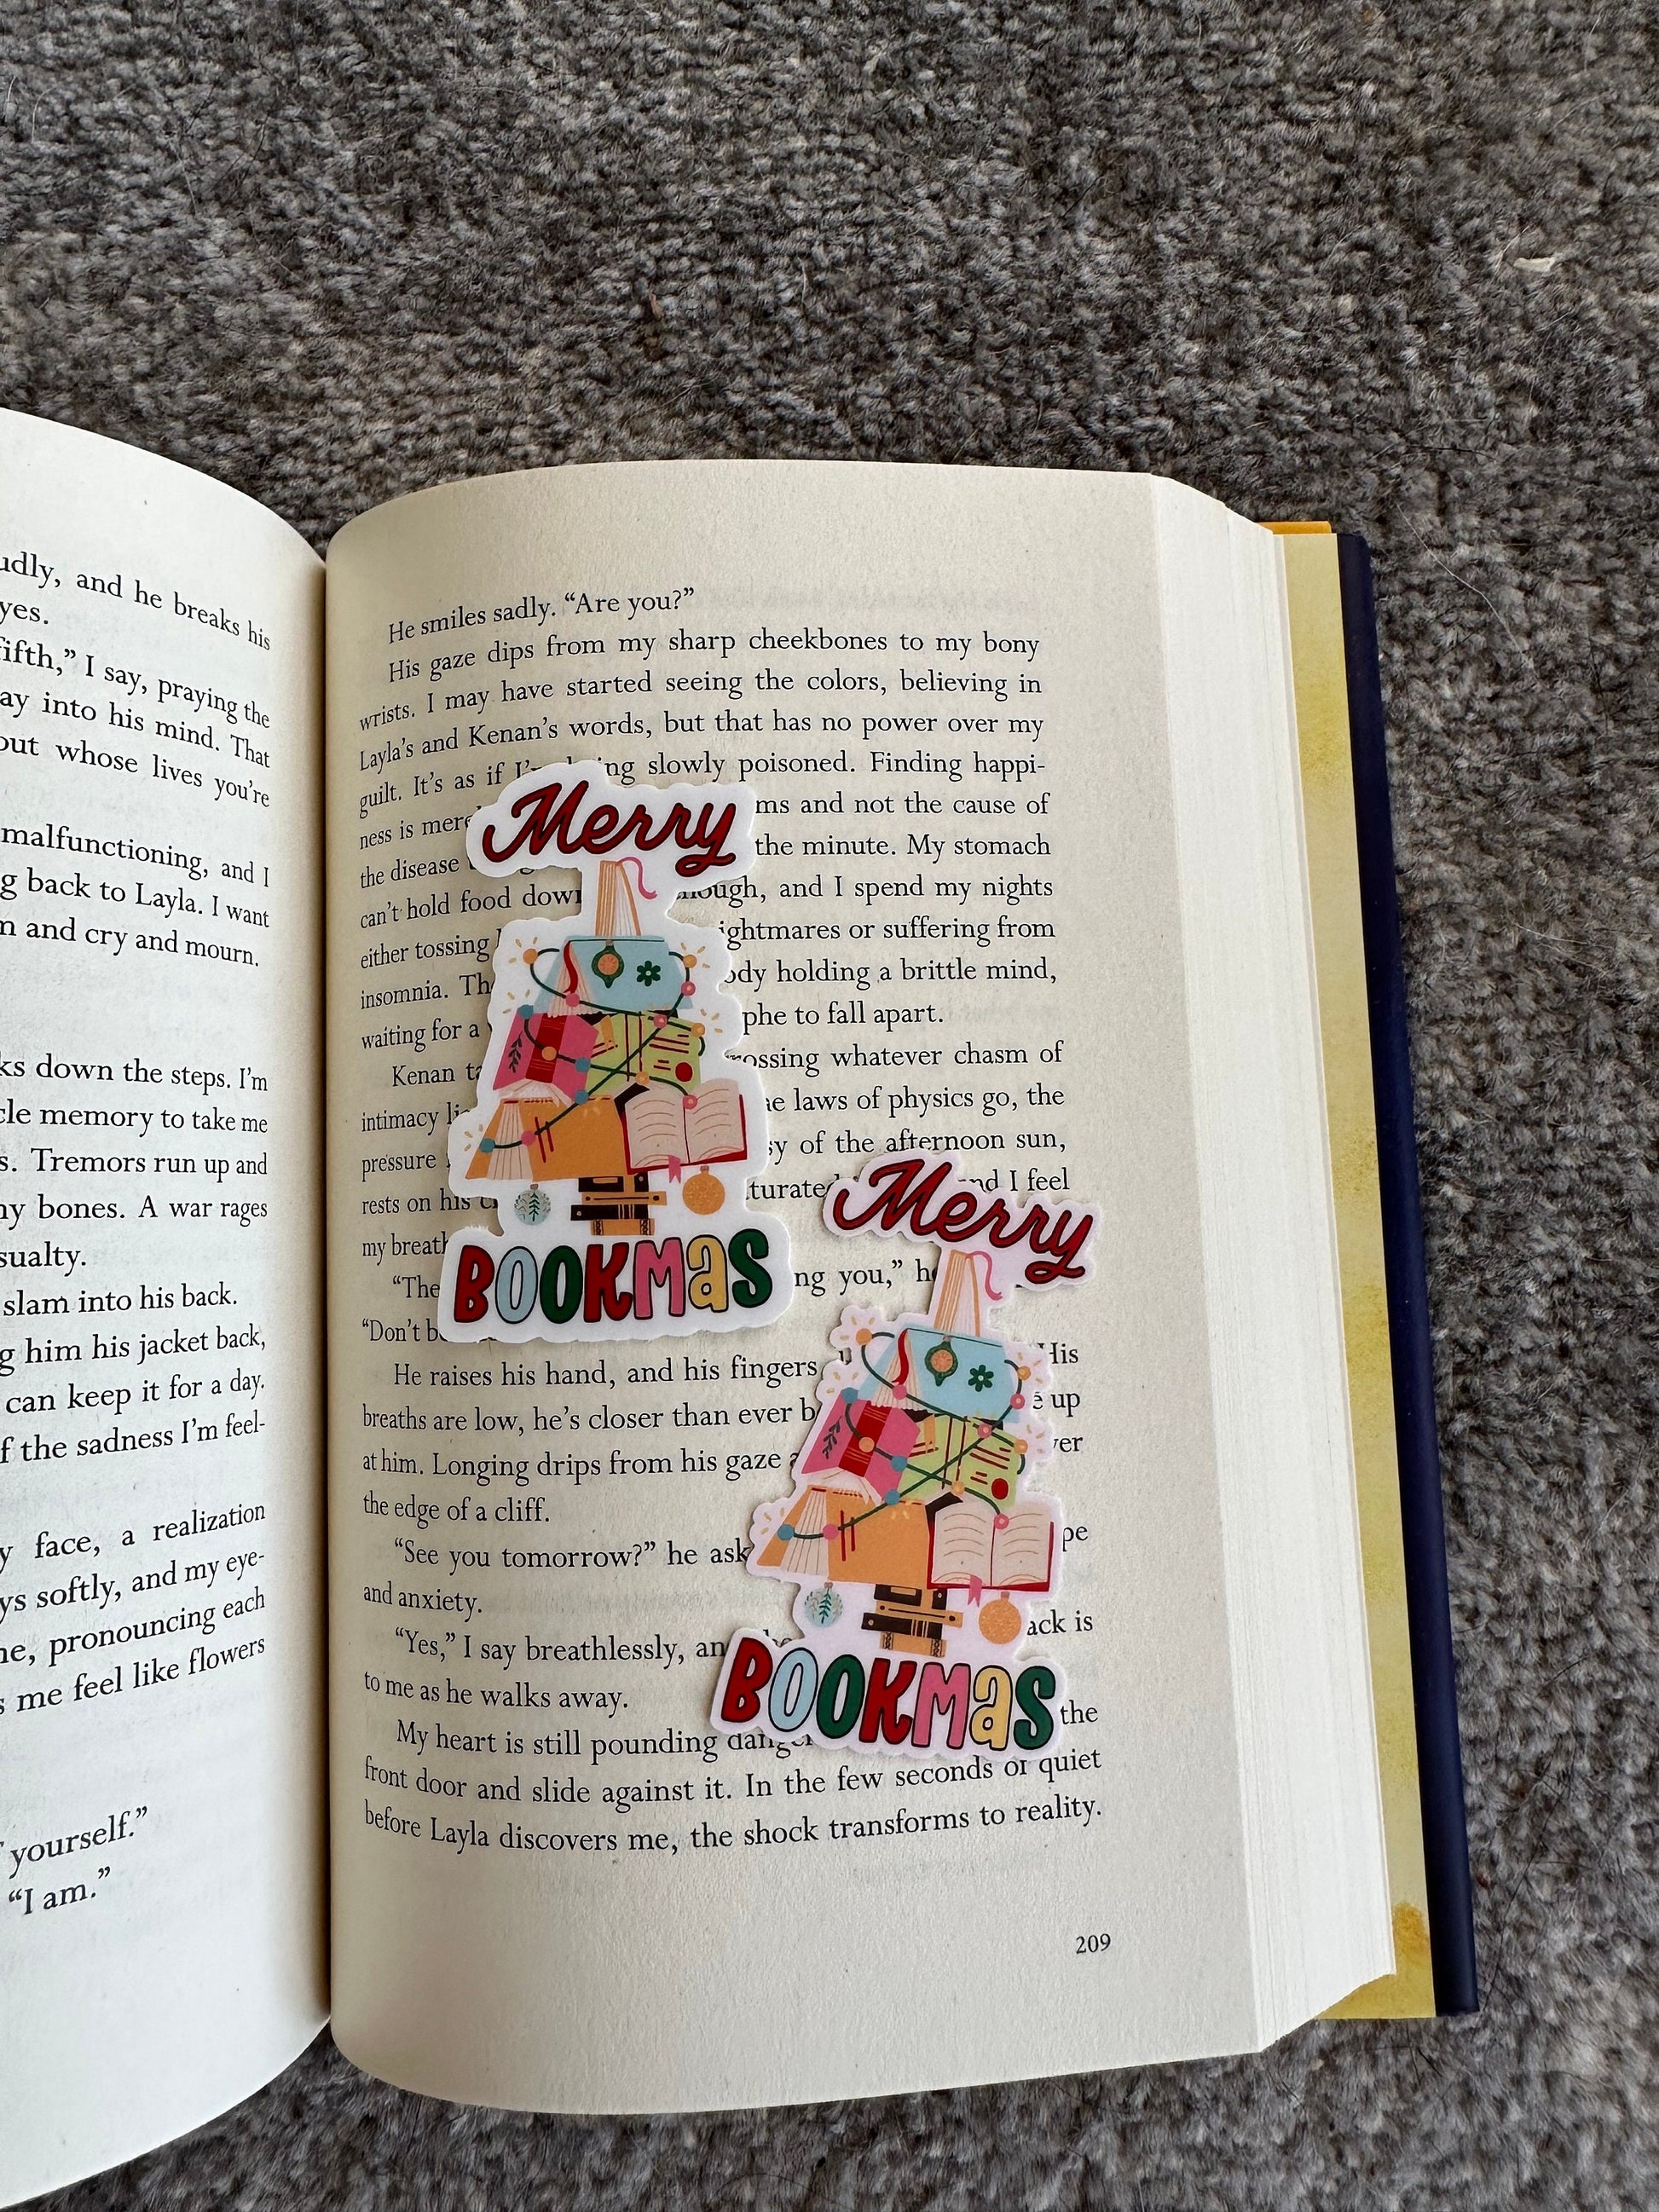 udly, and he breaks his
yes.
fifth,” I say, praying the
ay into his mind. That
out whose lives you’re
malfunctioning, and I
g back to Layla. I want
n and cry and mourn.
ks down the steps. I’m
cle memory to take me
s. Tremors run up and
ny bones. A war rages
sualty.
slam into his back.
g him his jacket back,
can keep it for a day.
f the sadness I’m feel-
y face, a realization
ys softly, and my eye-
ne, pronouncing each
s me feel like flowers
f yourself.”
“I am.”
He smiles sadly. “Are you?”
His gaze dips from my sharp cheekbones to my bony
wrists. I may have started seeing the colors, believing in
Layla’s and Kenan’s words, but that has no power over my
guilt. It’s as if I’m being slowly poisoned. Finding happi-
ness is mere ms and not the cause of
the disease the minute. My stomach
can’t hold food down though, and I spend my nights
either tossing ightmares or suffering from
insomnia. Th ody holding a brittle mind,
waiting for a phe to fall apart.
Kenan ta rossing whatever chasm of
intimacy li he laws of physics go, the
pressure sy of the afternoon sun,
rests on his c turated nd I feel
my breath
“The ng you,” he
“Don’t b
He raises his hand, and his fingers His
breaths are low, he’s closer than ever b e up
at him. Longing drips from his gaze a ver
the edge of a cliff.
“See you tomorrow?” he ask pe
and anxiety.
“Yes,” I say breathlessly, an ack is
to me as he walks away.
My heart is still pounding danger the
front door and slide against it. In the few seconds of quiet
before Layla discovers me, the shock transforms to reality.
209
Merry
BOOKMAS
Merry
BOOKMAS